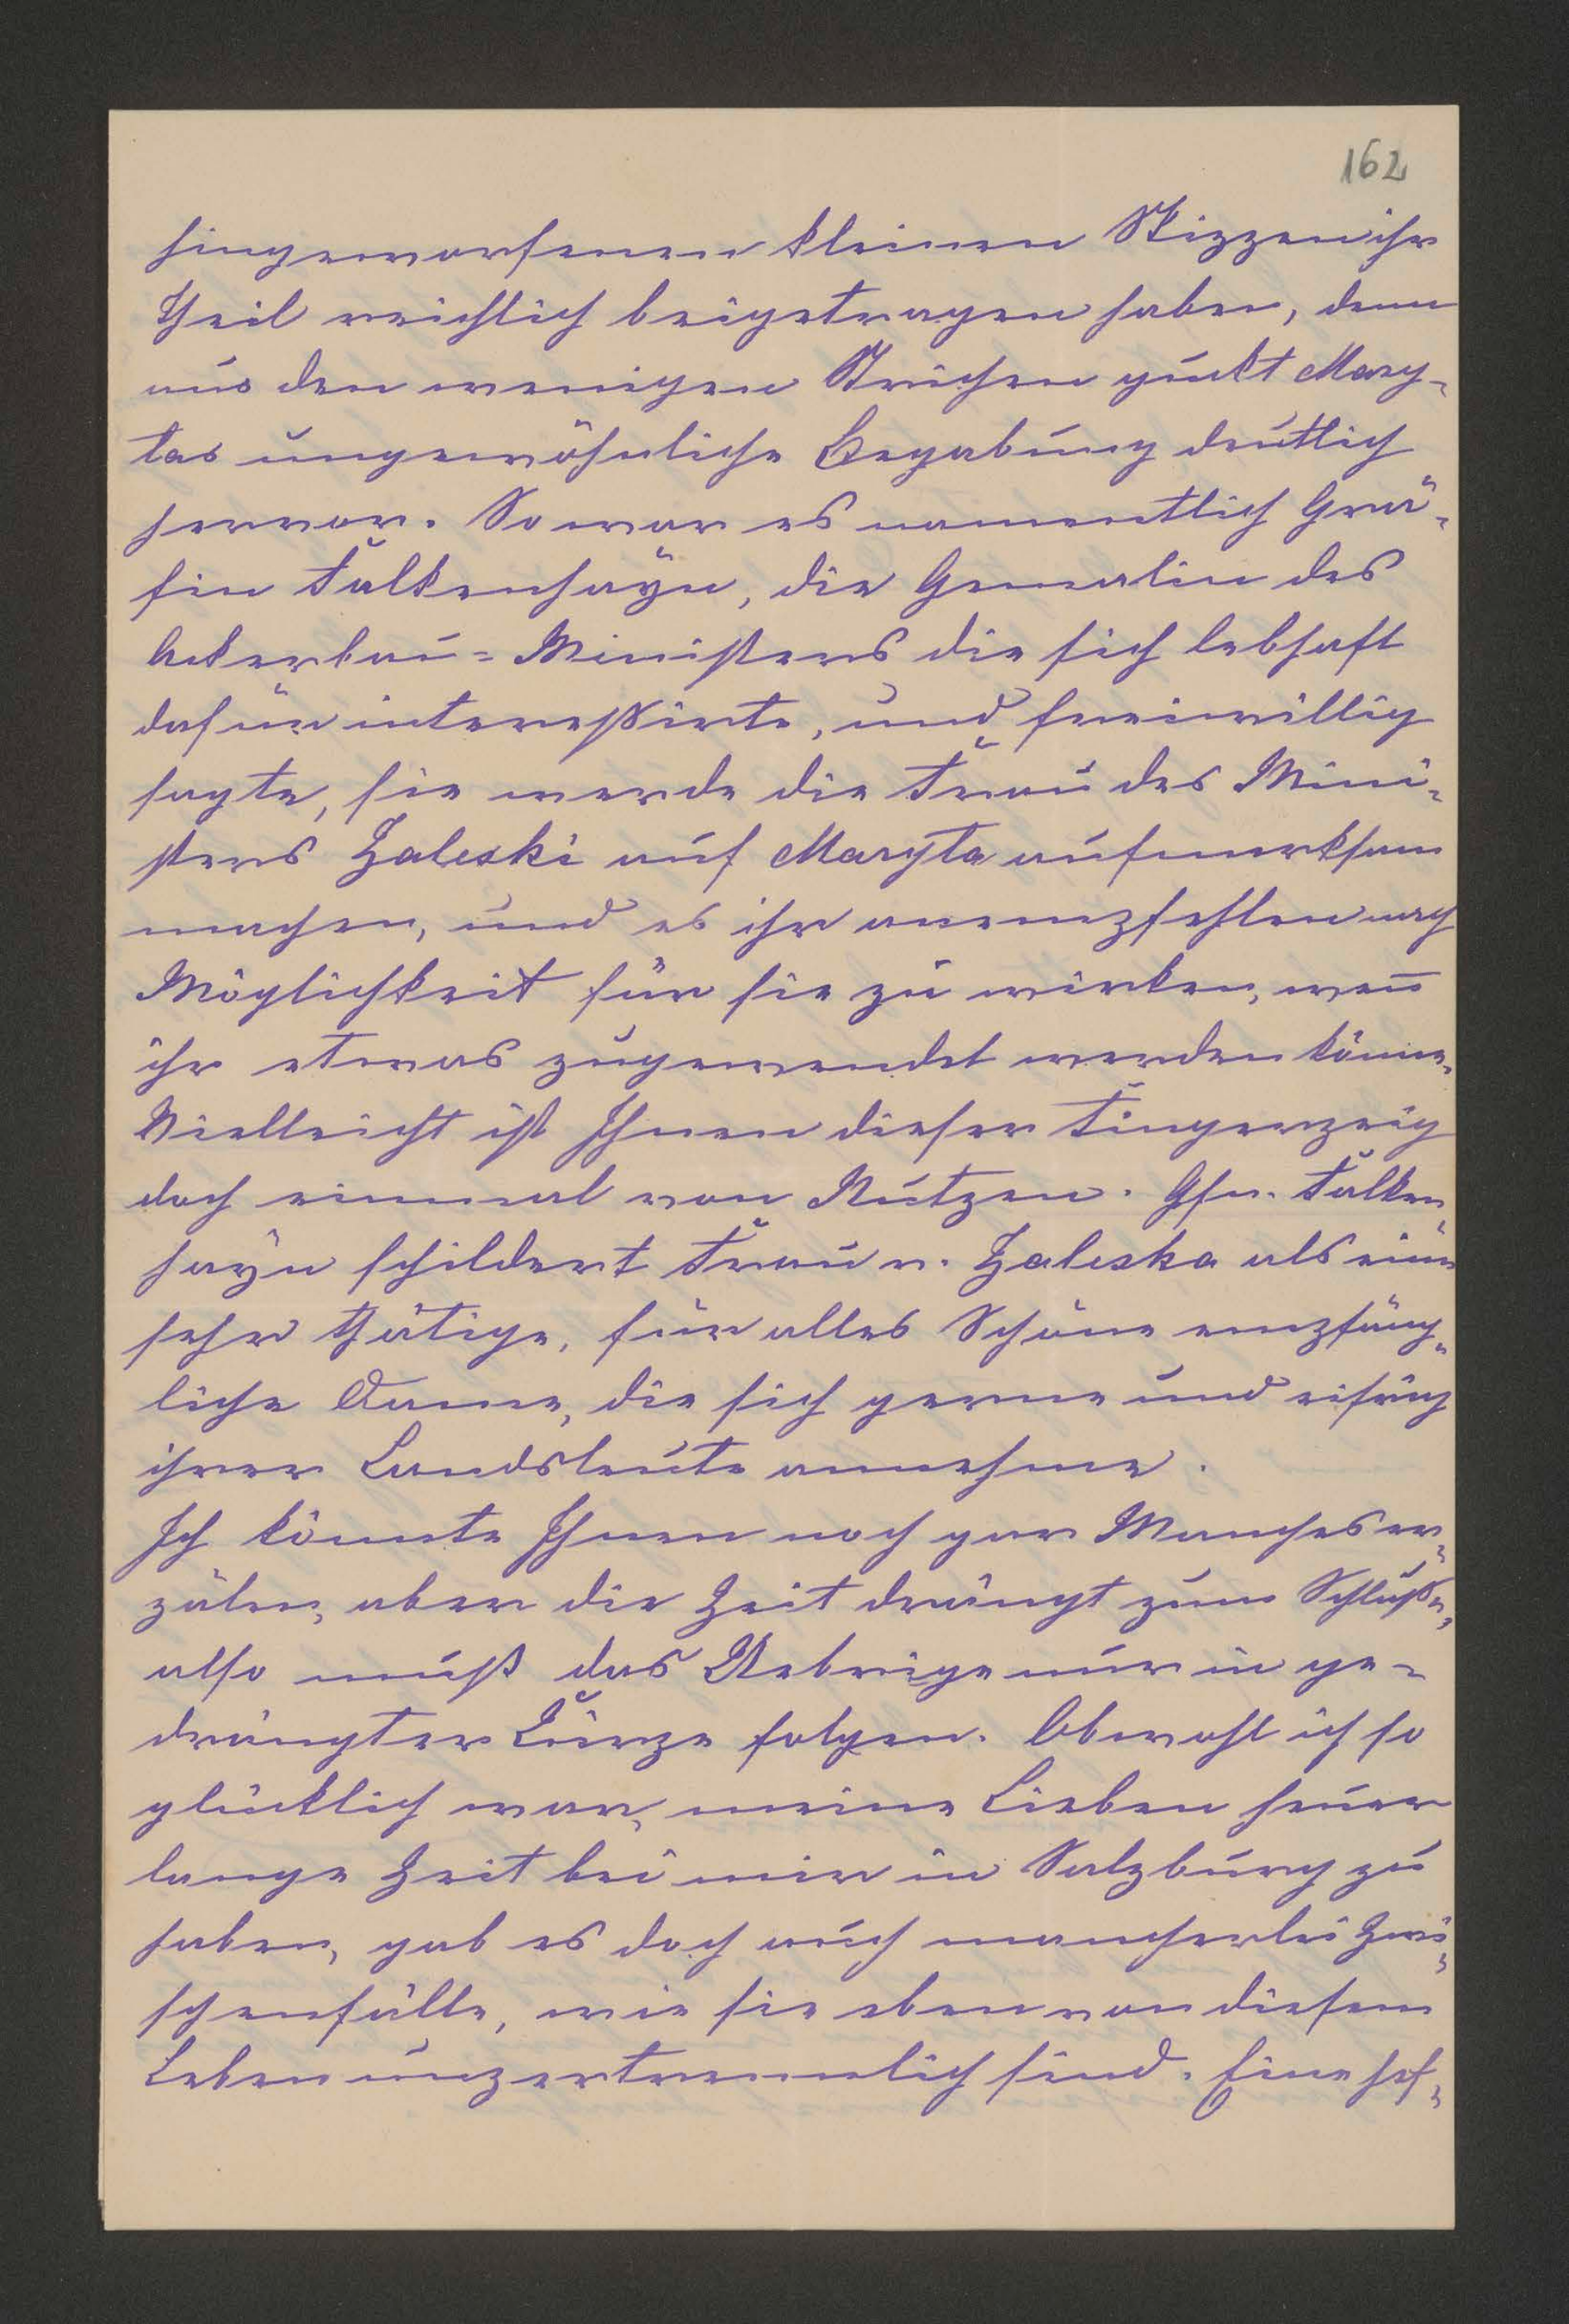 162
hingeworfenen kleinen Skizzen ihr
Theil reichlich beigetragen haben, denn
aus den wenigen Strichen guckt Mary-
tas ungewöhnliche Begabung deutlich
hervor. So war es namentlich Grä-
fin Falkenhayn, die Gemalin des
Ackerbau-Ministers die sich lebhaft
dafür interessirte, und freiwillig
sagte, sie werde die Frau des Mini-
sters Zaleski auf Maryta aufmerksam
machen, und es ihr anempfehlen nach
Möglichkeit für sie zu wirken, wen̄
ihr etwas zugewendet werden könne.
Vielleicht ist Ihnen dieser Fingerzeig
doch einmal von Nutzen. Gfn. Falken
hayn schildert Frau v. Zaleska als eine
sehr thätige, für alles Schöne empfäng-
liche Dame, die sich gerne und eifrig
ihrer Landsleute annehme.
Ich könnte Ihnen noch gar Manches er-
zälen, aber die Zeit drängt zum Schluße,
also muß das Uebrige nur in ge-
drängter Kürze folgen. Obwohl ich so
glücklich war, meine Lieben heuer
lange Zeit bei mir in Salzburg zu
haben, gab es doch auch mancherlei Zwi-
schenfälle, wie sie eben von diesem
Leben unzertrennlich sind. Eine hef-